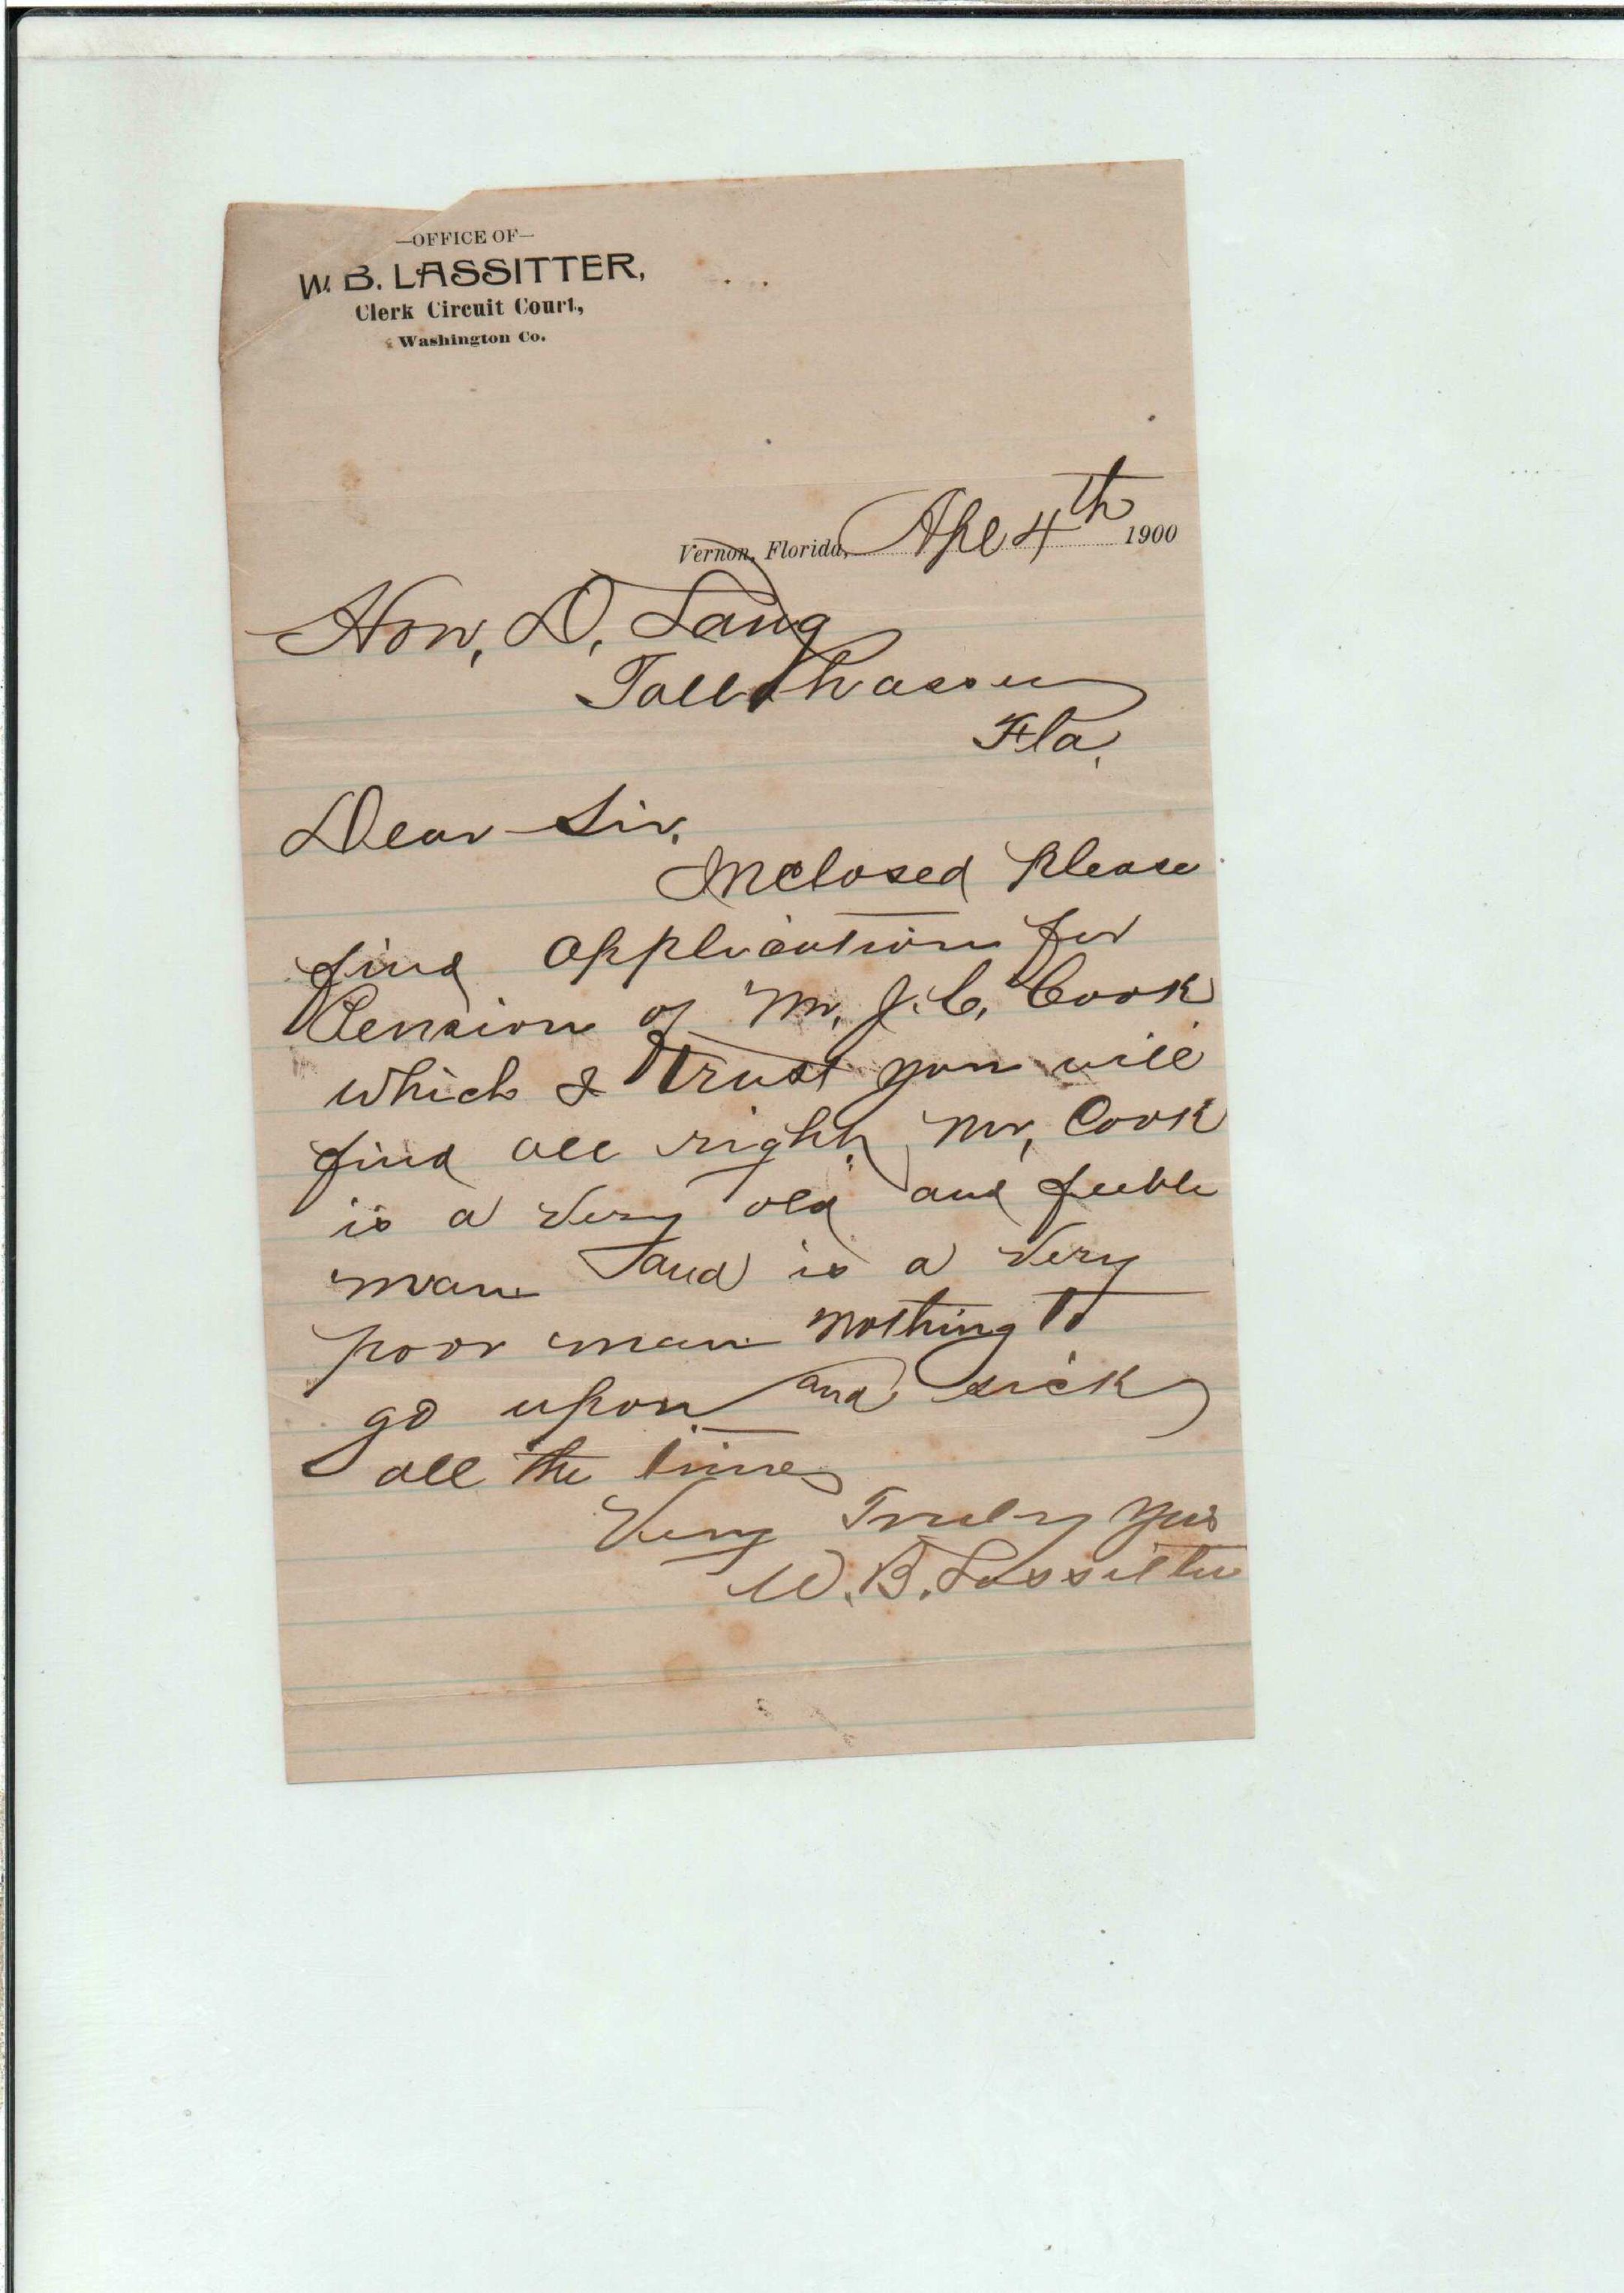 —OFFICE OF—
W. B. LASSITTER,
Clerk Circuit Court,
Washington Co.
Vernon, Florida, Apl 4th 1900
Hon, D, Lang
Tallahassee
Fla,
Dear Sir,
Inclosed please
find application for
Pension of Mr, J. C, Cook
which I trust you will
find all right, Mr, Cook
is a very old and feeble
man and is a very
poor man nothing to
go upon and sick
all the time
Very Truly Yrs
W. B. Lassitter